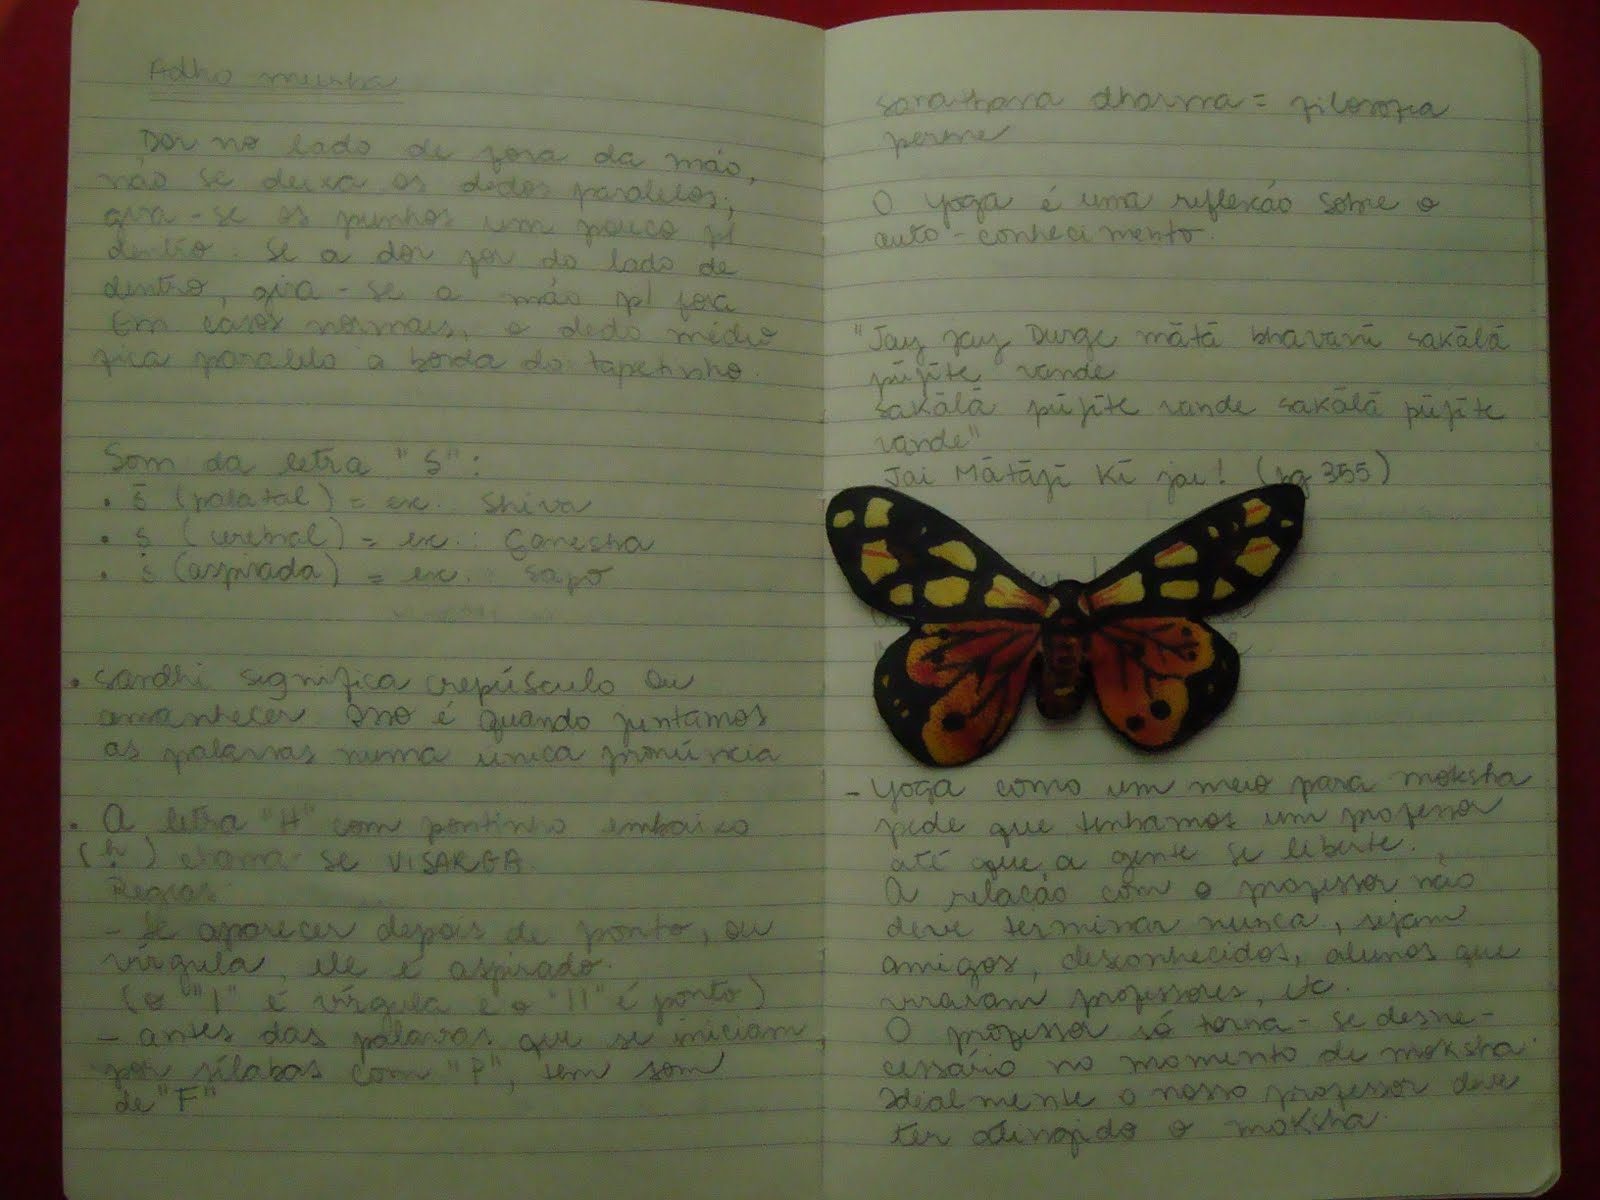 Adho mukha
Dor no lado de fora da mão,
não se deixa os dedos paralelos;
gira-se os punhos um pouco p/
dentro. Se a dor for do lado de
dentro, gira-se a mão p/ fora
Em casos normais, o dedo médio
fica paralelo a borda do tapetinho.
Som da letra "S":
• ś (palatal) = ex. Shiva
• ṣ (cerebral) = ex.: Ganesha
• s (aspirada) = ex.: Sapo
• sandhi significa crepúsculo ou
amanhecer. Isso é quando juntamos
as palavras numa única pronúncia
• A letra "H" com pontinho embaixo
(ḥ) chama-se VISARGA.
Regras:
- Se aparecer depois de ponto, ou
vírgula, ele é aspirado.
(o "|" é vírgula e o "||" é ponto)
- antes das palavras que se iniciam
por sílabas com "P", tem som
de "F"
dharma = filosofia
perene
O Yoga é uma reflexão sobre o
auto-conhecimento.
"Jay jay Durge mātā bhavānī sakālā
pūjīte vande
sakālā pūjīte vande sakālā pūjīte
vande"
Jai Mātājī Kī jai! (pg 355)
- Yoga como um meio para moksha
pede que tenhamos um professor
até que a gente se liberte.
A relação com o professor não
deve terminar nunca, sejam
amigos, desconhecidos, alunos que
viraram professores, etc.
O professor só torna-se desne-
cessário no momento de moksha.
Idealmente o nosso professor deve
ter atingido o moksha.